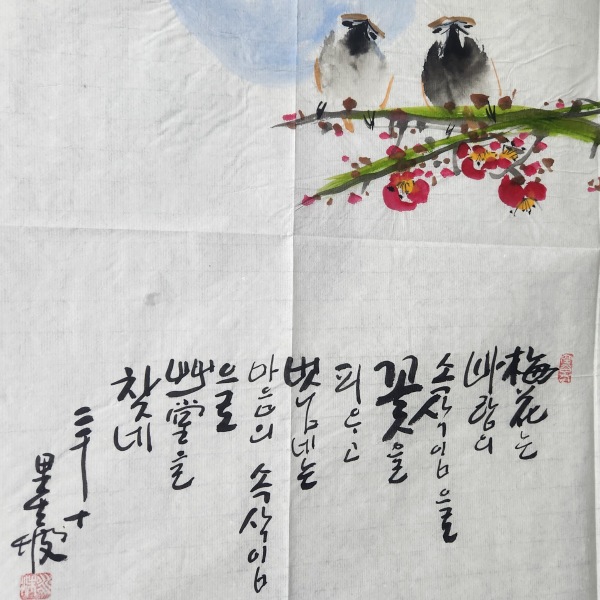 梅花는
바람의
속삭임으로
꽃을
피우고
벗님네는
마음의 속삭임
으로
艸堂을
찾네
二千十
坡